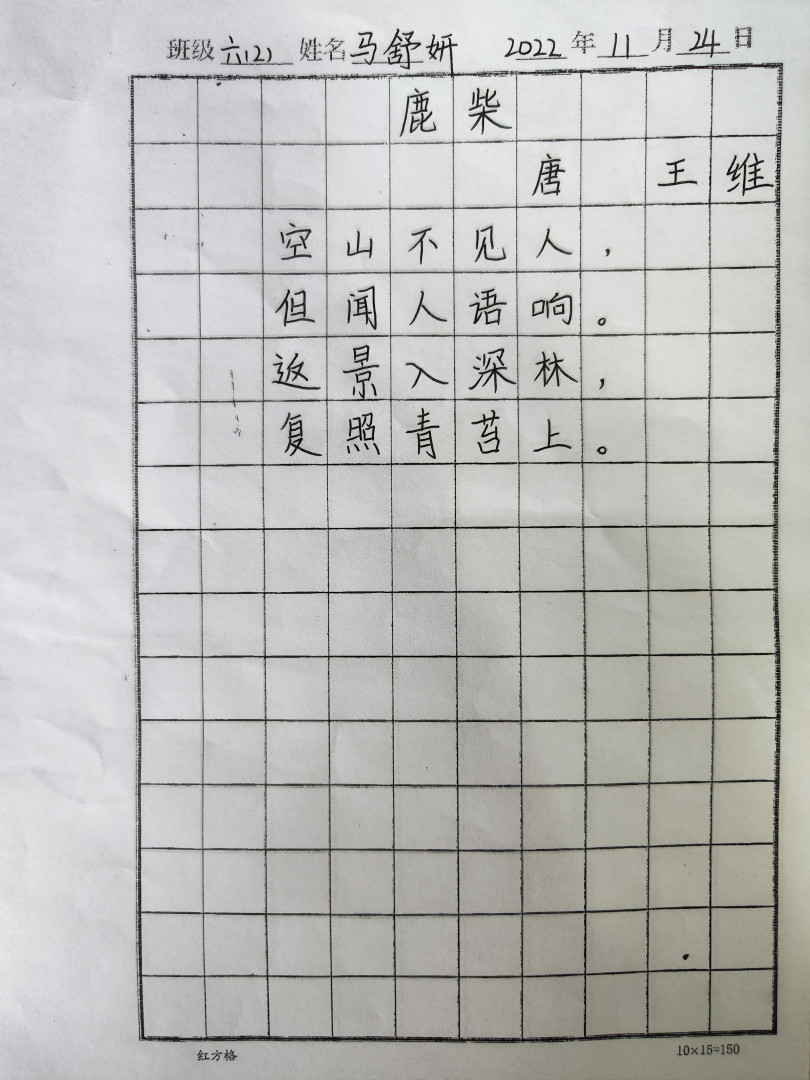 班级 六(2) 姓名 马舒妍 2022 年 11 月 24 日
鹿柴
唐 王维
空山不见人，
但闻人语响。
返景入深林，
复照青苔上。
红方格 10×15=150